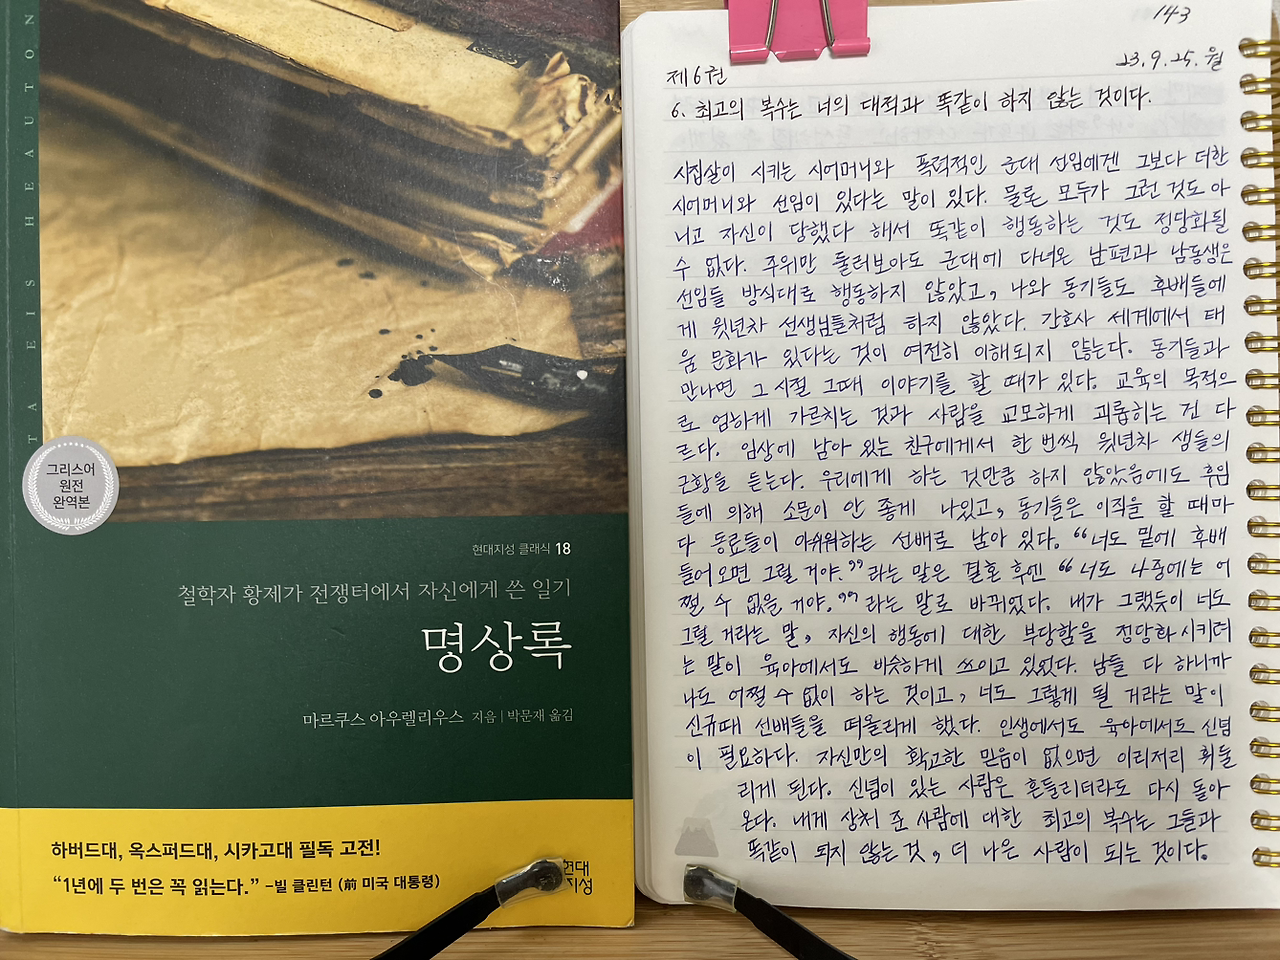 TA EIS HEAUTON
그리스어
원전
완역본
현대지성 클래식 18
철학자 황제가 전쟁터에서 자신에게 쓴 일기
명상록
마르쿠스 아우렐리우스 지음 | 박문재 옮김
하버드대, 옥스퍼드대, 시카고대 필독 고전!
“1년에 두 번은 꼭 읽는다.” -빌 클린턴 (前 미국 대통령)
현대
지성
143
23.9.25.월
제6권
6. 최고의 복수는 너의 대적과 똑같이 하지 않는 것이다.
시집살이 시키는 시어머니와 폭력적인 군대 선임에겐 그보다 더한
시어머니와 선임이 있다는 말이 있다. 물론, 모두가 그런 것도 아
니고 자신이 당했다 해서 똑같이 행동하는 것도 정당화될
수 없다. 주위만 둘러보아도 군대에 다녀온 남편과 남동생은
선임들 방식대로 행동하지 않았고, 나와 동기들도 후배들에
게 윗년차 선생님들처럼 하지 않았다. 간호사 세계에서 태
움 문화가 있다는 것이 여전히 이해되지 않는다. 동기들과
만나면 그 시절 그때 이야기를 할 때가 있다. 교육의 목적으
로 엄하게 가르치는 것과 사람을 교모하게 괴롭히는 건 다
르다. 임상에 남아 있는 친구에게서 한 번씩 윗년차 샘들의
근황을 듣는다. 우리에게 하는 것만큼 하지 않았음에도 후임
들에 의해 소문이 안 좋게 나있고, 동기들은 이직을 할 때마
다 동료들이 아쉬워하는 선배로 남아 있다. “너도 밑에 후배
들어오면 그럴 거야.” 라는 말은 결혼 후엔 “너도 나중에는 어
쩔 수 없을 거야.” 라는 말로 바뀌었다. 내가 그랬듯이 너도
그럴 거라는 말, 자신의 행동에 대한 부당함을 정당화시키려
는 말이 육아에서도 비슷하게 쓰이고 있었다. 남들 다 하니까
나도 어쩔 수 없이 하는 것이고, 너도 그렇게 될 거라는 말이
신규때 선배들을 떠올리게 했다. 인생에서도 육아에서도 신념
이 필요하다. 자신만의 확고한 믿음이 없으면 이리저리 휘둘
리게 된다. 신념이 있는 사람은 흔들리더라도 다시 돌아
온다. 내게 상처 준 사람에 대한 최고의 복수는 그들과
똑같이 되지 않는 것, 더 나은 사람이 되는 것이다.